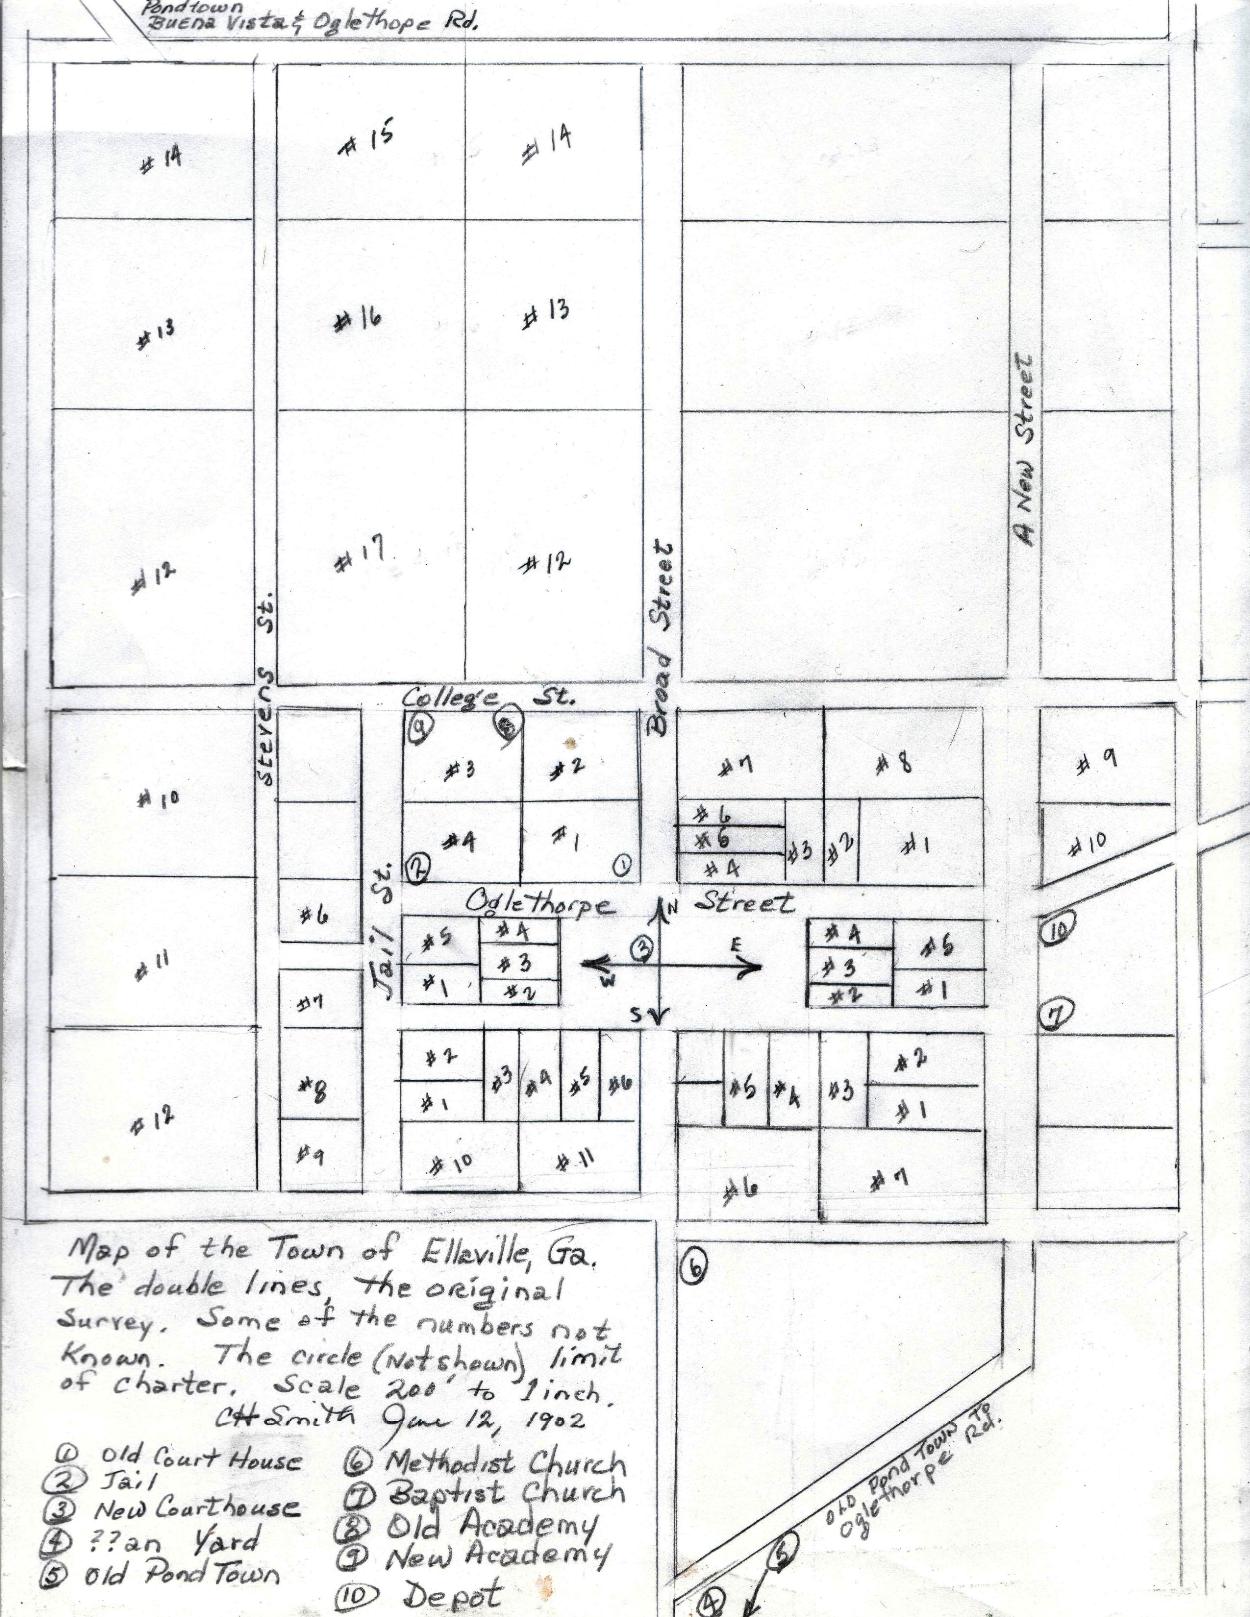 Pondtown
Buena Vista & Oglethope Rd.
#14
#15
#14
#13
#16
#13
A New Street
#12
#17
#12
Stevens St.
Broad Street
College St.
9
8
#3
#2
#7
#8
#9
#10
#4
#1
#6
#6
#4
#3
#2
#1
#10
2
1
Jail St.
Oglethorpe Street
#6
#5
#4
#3
#1
#2
N
3
E
W
S
#4
#3
#2
#5
#1
10
#11
#7
7
#2
#1
#3
#4
#5
#6
#5
#4
#3
#2
#1
#8
#12
#9
#10
#11
#6
#7
Map of the Town of Ellaville, Ga.
The double lines, the original
Survey. Some of the numbers not
Known. The circle (Not shown) limit
of charter. Scale 200' to 1 inch.
CH Smith June 12, 1902
6
1 Old Court House
2 Jail
3 New Courthouse
4 ??an Yard
5 Old Pond Town
6 Methodist Church
7 Baptist Church
8 Old Academy
9 New Academy
10 Depot
Old Pond Town To
Oglethorpe Rd.
5
4